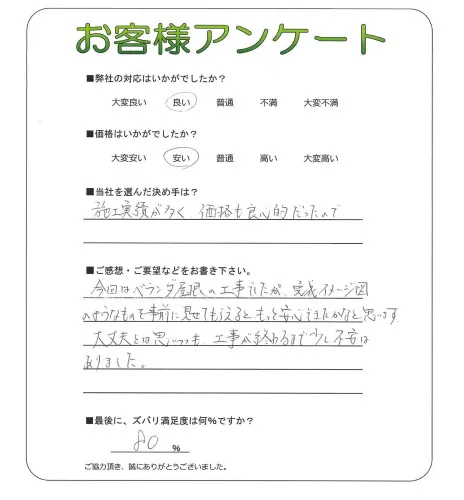 お客様アンケート
■弊社の対応はいかがでしたか?
大変良い 良い 普通 不満 大変不満
■価格はいかがでしたか?
大変安い 安い 普通 高い 大変高い
■当社を選んだ決め手は?
施工実績が多く、価格も良心的だったので
■ご感想・ご要望などをお書き下さい。
今回はベランダ屋根の工事でしたが、完成イメージ図
のようなものを事前に見せてもらえると、もっと安心できたかなと思います。
大丈夫とは思いつつも、工事が終わるまで少し不安は
ありました。
■最後に、ズバリ満足度は何%ですか?
80 %
ご協力頂き、誠にありがとうございました。